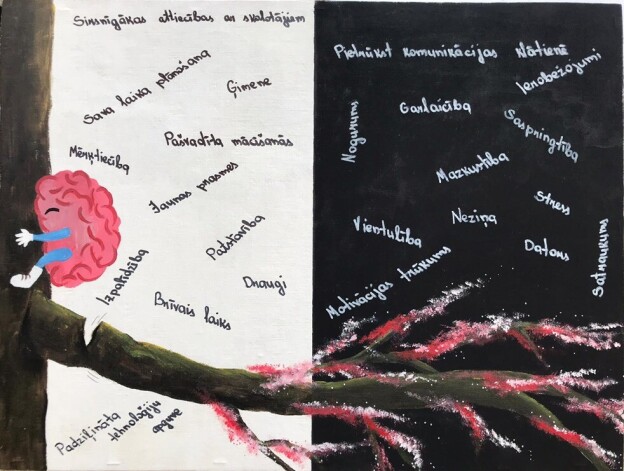 Sirsnīgākas attiecības ar skolotājiem
Sava laika plānošana
Ģimene
Pašvadīta mācīšanās
Mērķtiecība
Jaunas prasmes
Patstāvība
Izpalīdzība
Draugi
Brīvais laiks
Padziļināta
tehnoloģiju
apguve
Pietrūkst komunikācijas klātienē
Ierobežojumi
Garlaicība
Nogurums
Saspringtība
Mazkustība
Stress
Neziņa
Vientulība
Dators
Satraukums
Motivācijas trūkums